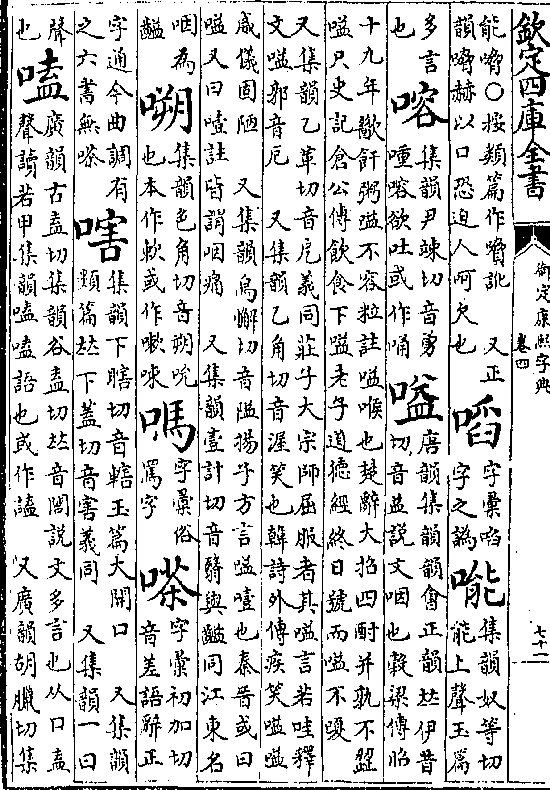 欽定四庫全書
御定康熙字典
卷四
七十二
能嗋〇按類篇作嗋訛 又正
韻嗋赫以口恐迫人呵欠也
㗖
字彙啗
字之譌
集韻奴等切
能上聲玉篇
多言
也
集韻尹竦切音勇
欲吐或作
嗌
唐韻集韻韻會正韻𠀤伊昔
切音益說文咽也穀梁傳昭
十九年歠飦粥嗌不容粒註嗌喉也楚辭大招四酎并孰不澀
嗌只史記倉公傳飲食下嗌老子道德經終日號而嗌不嗄
又集韻乙革切音戹義同莊子大宗師屈服者其嗌言若哇釋
文嗌郭音厄 又集韻乙角切音渥笑也韓詩外傳疾笑嗌嗌
威儀固陋 又集韻烏懈切音隘揚子方言嗌噎也秦晉或曰
嗌又曰噎註皆謂咽痛 又集韻壹計切音翳與齸同江東名
咽為
齸
嗍
集韻色角切音朔吮
也本作欶或作嗽
嗎
字彙俗
罵字
嗏
字彙初加切
音差語辭正
字通今曲調有
之六書無嗏
嗐
集韻下瞎切音轄玉篇大開口 又集韻
類篇𠀤下蓋切音害義同 又集韻一曰
聲
也
嗑
廣韻古盍切集韻谷盍切𠀤音閤說文多言也从口盍
聲讀若甲集韻嗑嗑語也或作 又廣韻胡臘切集